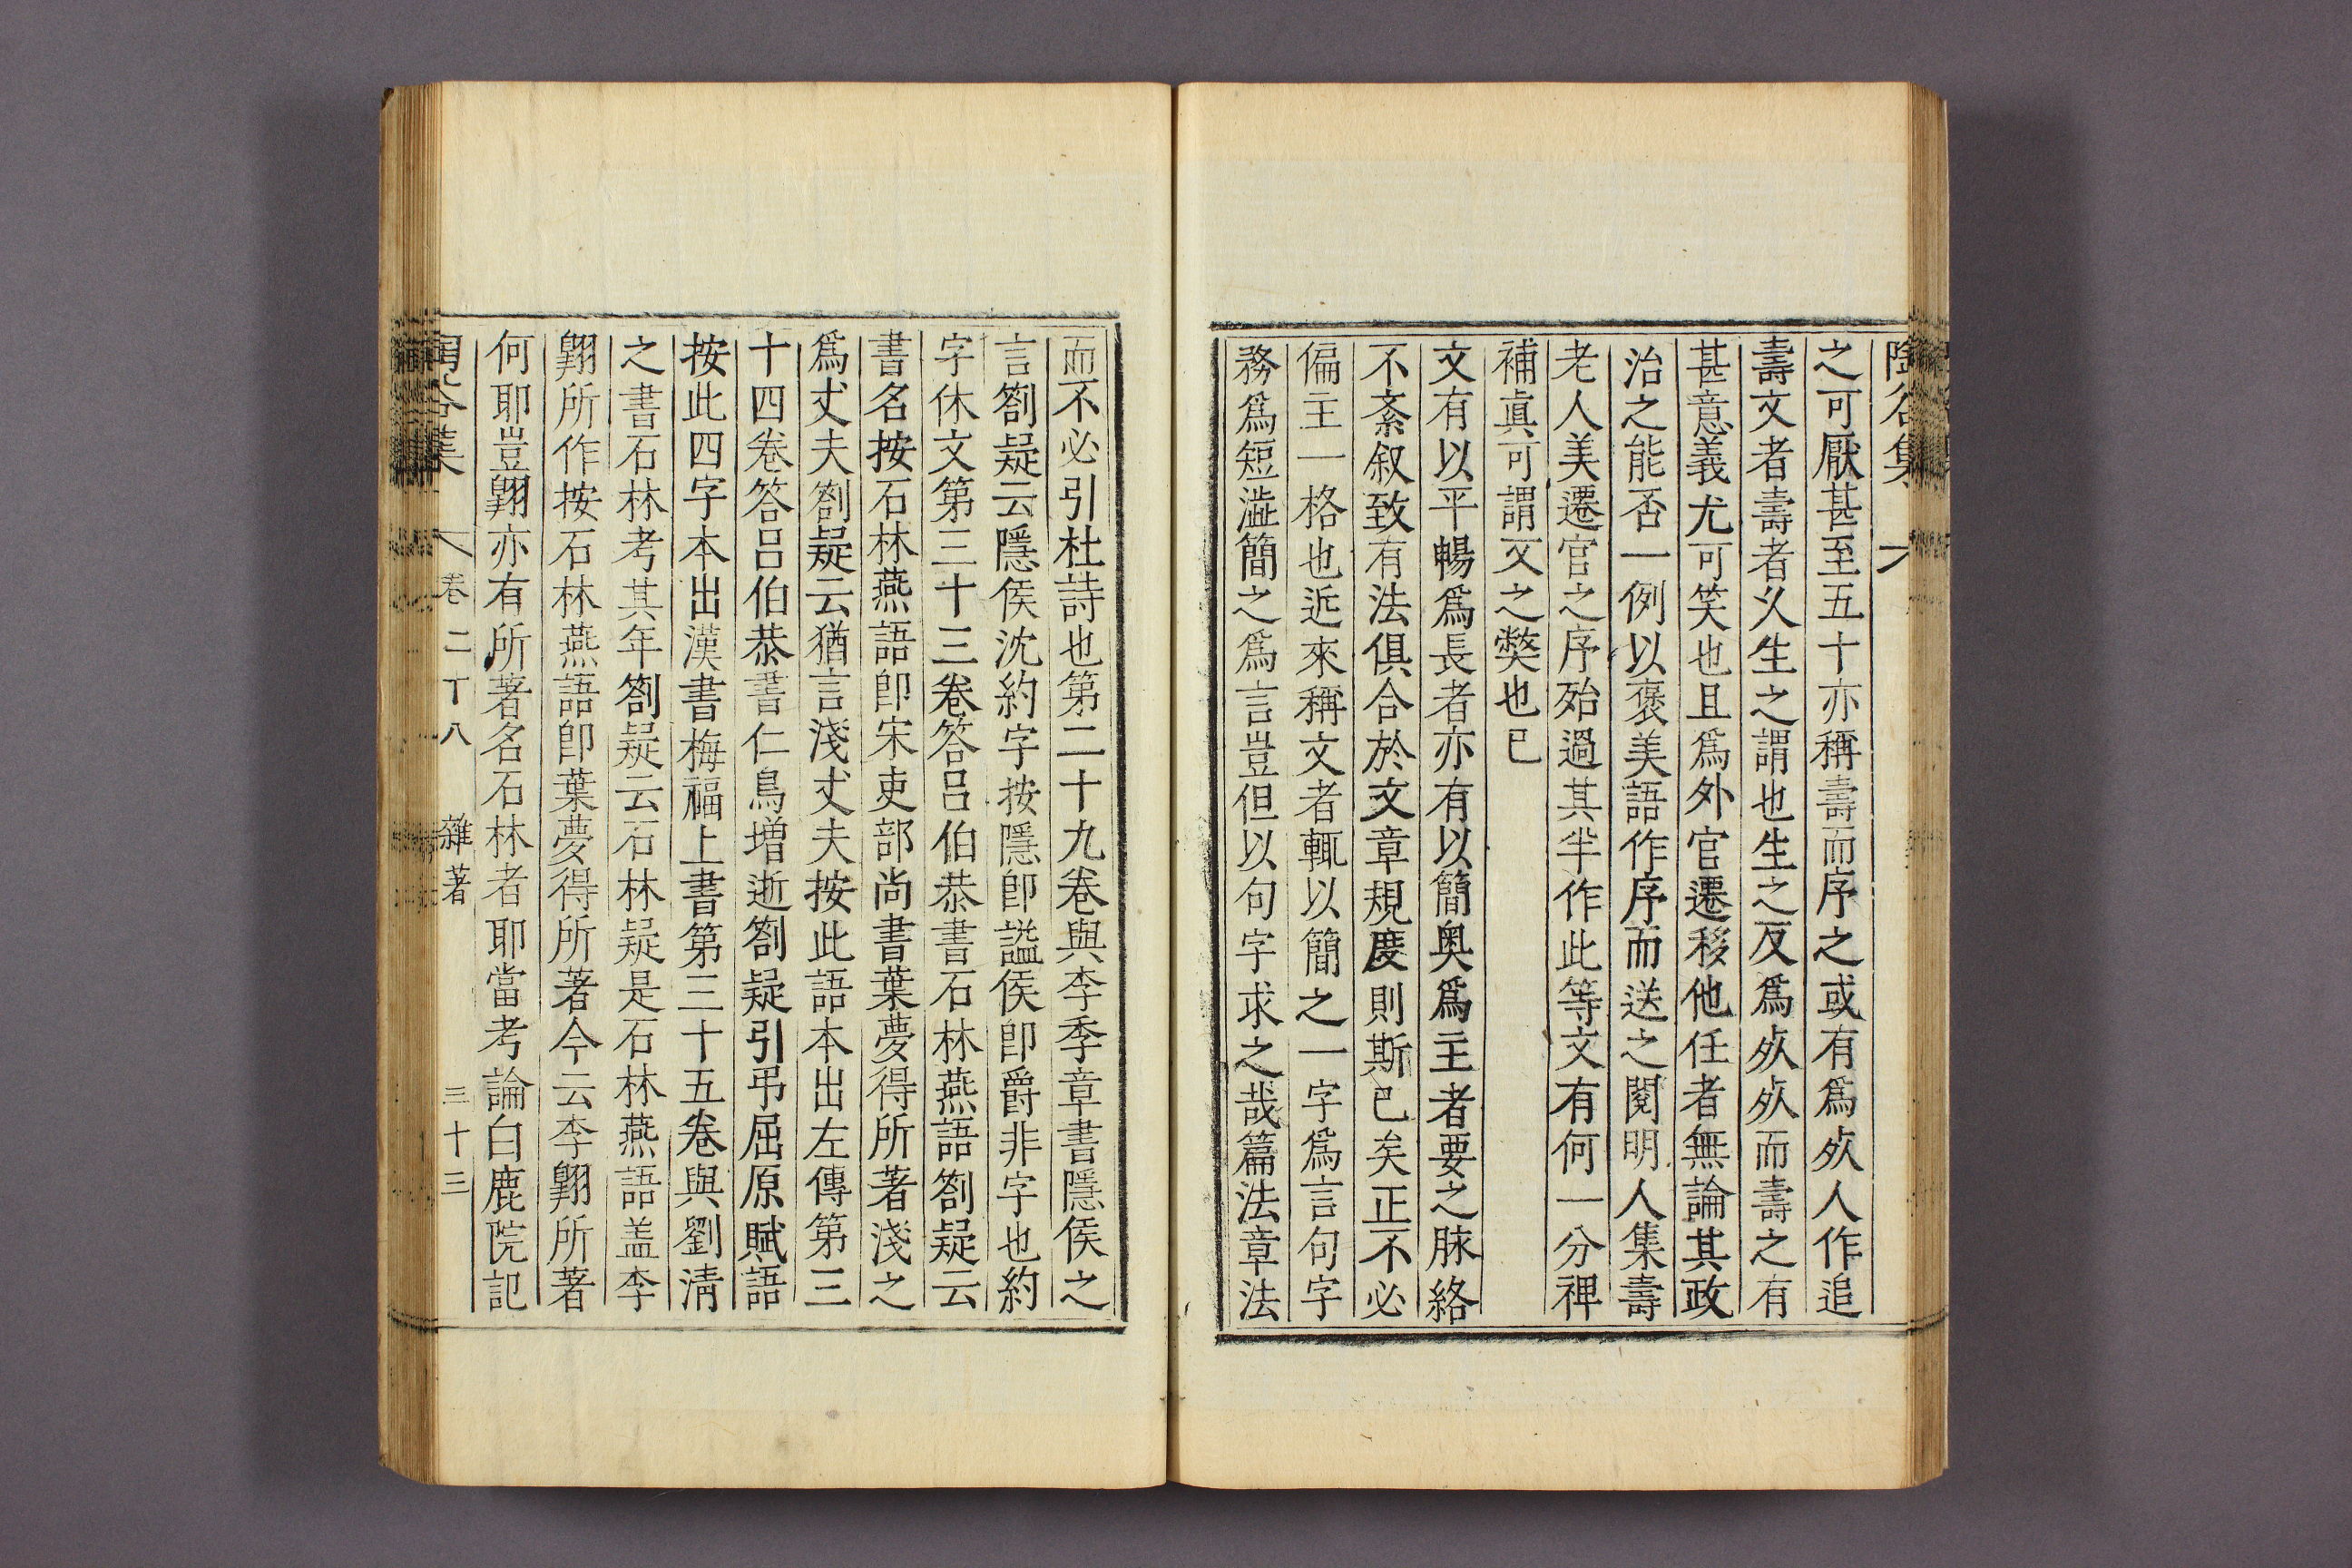 陶谷集
之可厭甚至五十亦稱壽而序之或有爲㱙人作追
壽文者壽者乆生之謂也生之反爲㱙㱙而壽之有
甚意義尤可笑也且爲外官遷移他任者無論其政
治之能否一例以褒美語作序而送之閱明人集壽
老人美遷官之序殆過其半作此等文有何一分裨
補眞可謂文之獘也已
文有以平暢爲長者亦有以簡奥爲主者要之脉絡
不紊叙致有法俱合於文章規度則斯已矣正不必
偏主一格也近來稱文者輒以簡之一字爲言句字
務爲短澁簡之爲言豈但以句字求之哉篇法章法
而不必引杜詩也第二十九卷與李季章書隱侯之
言劄疑云隱侯沈約字按隱卽謚侯卽爵非字也約
字休文第三十三卷答呂伯恭書石林燕語劄疑云
書名按石林燕語卽宋吏部尚書葉夢得所著淺之
爲丈夫劄疑云猶言淺丈夫按此語本出左傳第三
十四卷答呂伯恭書仁鳥增逝劄疑引弔屈原賦語
按此四字本出漢書梅福上書第三十五卷與劉淸
之書石林考其年劄疑云石林疑是石林燕語盖李
翺所作按石林燕語卽葉夢得所著今云李翺所著
何耶豈翺亦有所著名石林者耶當考論白鹿院記
卷二十八 雜著 三十三